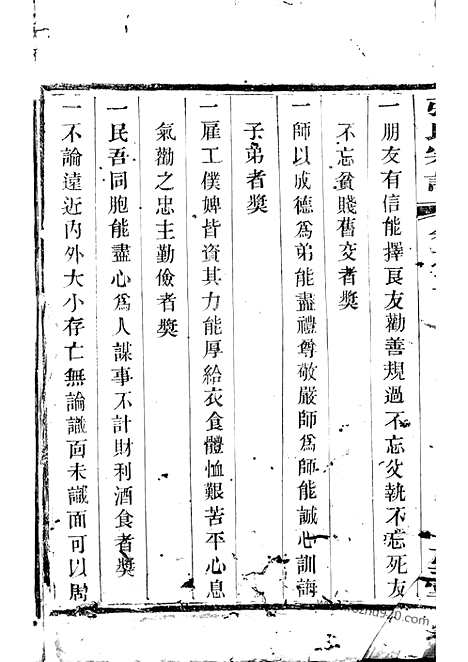 張氏宗譜
一朋友有信能擇良友勸善規過不忘父執不忘死友
不忘貧賤舊交者奬
一師以成德為弟能盡禮尊敬嚴師為師能誠心訓誨
子弟者奬
一雇工僕婢皆資其力能厚給衣食體恤艱苦平心息
氣勸之忠主勤儉者奬
一民吾同胞能盡心為人謀事不計財利酒食者奬
一不論遠近內外大小存亡無論識面未識面可以周